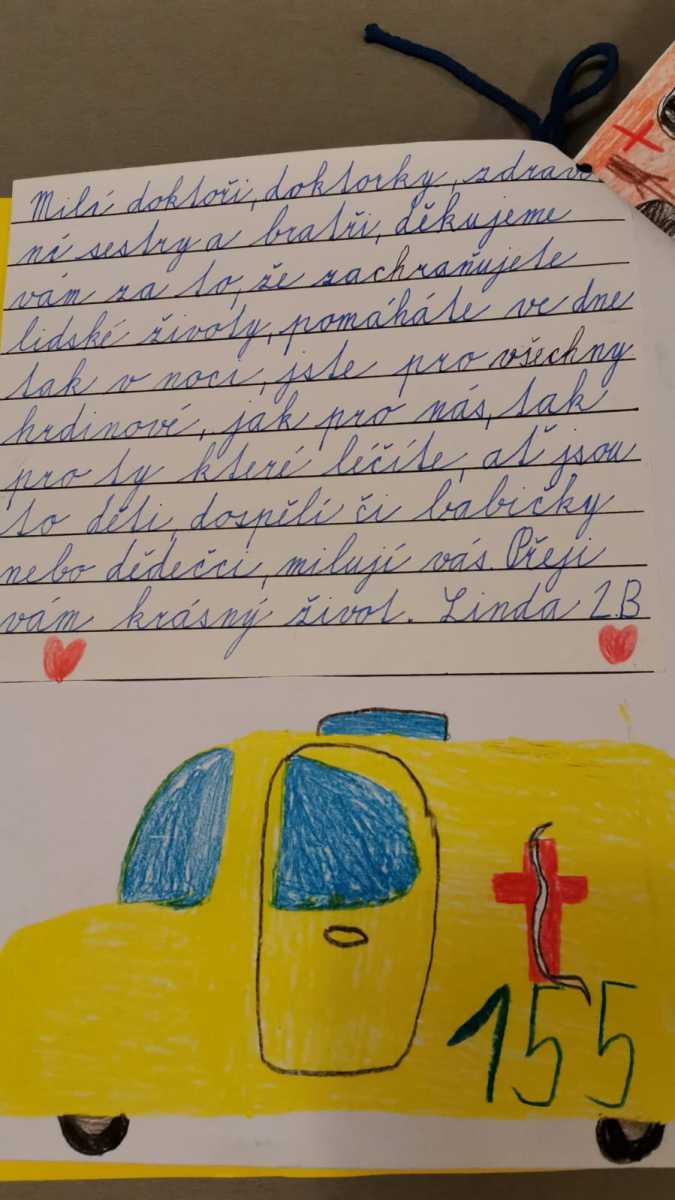 Milí doktoři, doktorky, zdrav
né sestry a bratři, děkujeme
vám za to, že zachraňujete
lidské životy, pomáháte ve dne
tak v noci, jste pro všechny
hrdinové, jak pro nás, tak
pro ty které léčíte, ať jsou
to děti, dospělí či babičky
nebo dědečci, milují vás. Přeji
vám krásný život. Linda 2.B
155